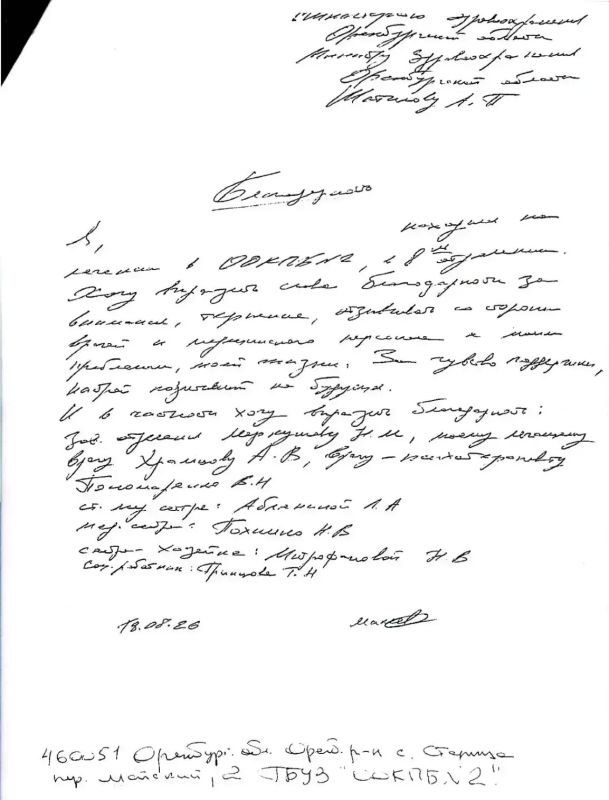 Министерство здравоохранения
Оренбургской области
Министру Здравоохранения
Оренбургской области
Шатилову А. П
Благодарность
Я, находился на
лечении в ООКПБ№2, в 8м отделении.
Хочу выразить слова благодарности за
внимание, терпение, отзывчивость со стороны
врачей и медицинского персонала к моим
проблемам, моей жизни. За чувство поддержки,
настрой позитивный на будущее.
И в частности хочу выразить благодарность:
Зав. отделения Меркулову Н.М, моему лечащему
врачу Храмцову А.В, врачу-психотерапевту
Пономаренко В.Н
ст. мед сестре: Аблянской Л.А
мед. сестре: Н.В
сестре-хозяйке: Митрофановой Н В
Соц. работник: Принцева Т.Н
18.08.26
460051 Оренбург. обл. Оренб. р-н с. Старица
пер. Майский, 2 ГБУЗ "ООКПБ№2"